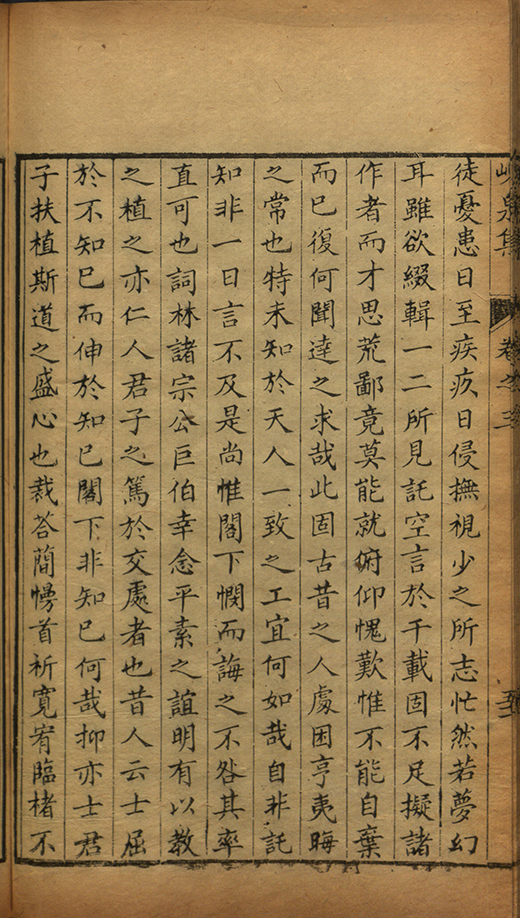 峴泉集 卷之三
徒憂患日至疾疚日侵撫視少之所志忙然若夢幻
耳雖欲綴輯一二所見託空言於千載固不足擬諸
作者而才思荒鄙竟莫能就俯仰愧歎惟不能自棄
而已復何聞達之求哉此固古昔之人處困亨夷晦
之常也特未知於天人一致之工宜何如哉自非託
知非一日言不及是尚惟閣下憫而誨之不咎其率
直可也詞林諸宗公巨伯幸念平素之誼明有以教
之植之亦仁人君子之篤於交處者也昔人云士屈
於不知已而伸於知已閣下非知已何哉抑亦士君
子扶植斯道之盛心也裁荅蕳慢首祈寬宥臨楮不